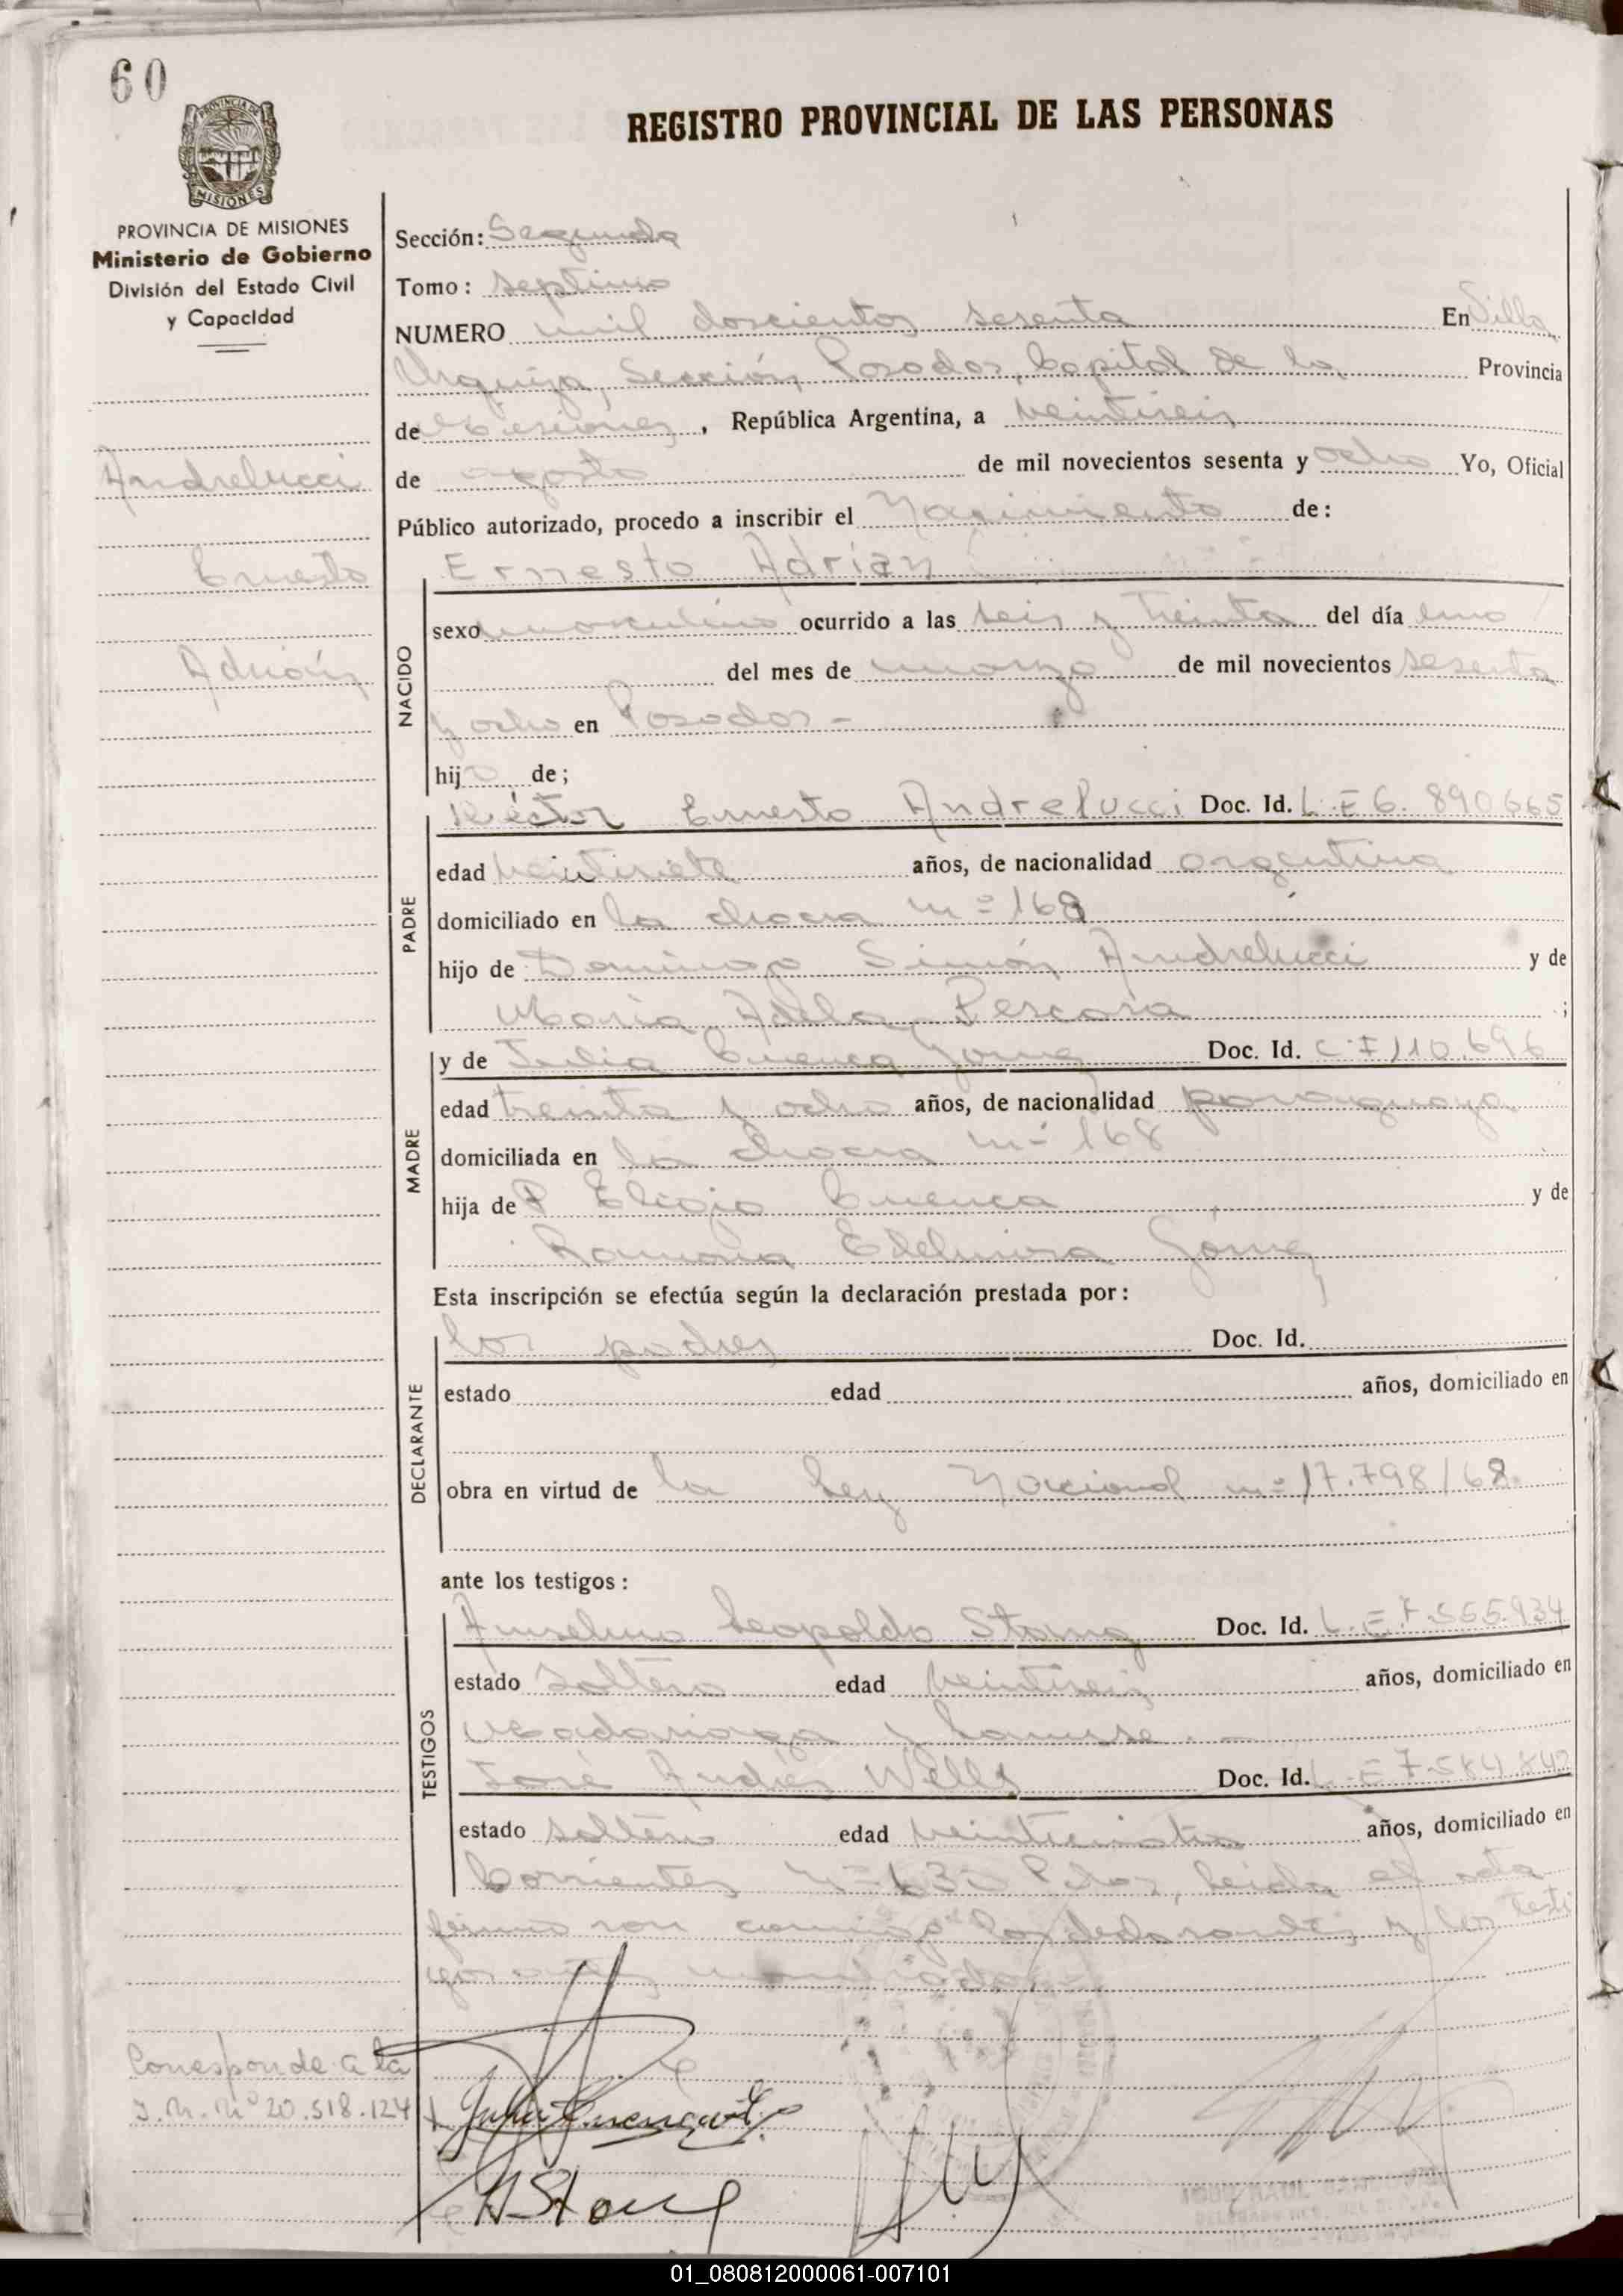 60
REGISTRO PROVINCIAL DE LAS PERSONAS
PROVINCIA DE MISIONES
PROVINCIA DE MISIONES
Ministerio de Gobierno
División del Estado Civil
y Capacidad
Andrelucci
Ernesto
Adrián
Sección: Segunda
Tomo: septimo
NUMERO mil doscientos sesenta En Villa
Urquiza, Sección Posadas, Capital de la Provincia
de Misiones, República Argentina, a veintiseis
de agosto de mil novecientos sesenta y ocho Yo, Oficial
Público autorizado, procedo a inscribir el Nacimiento de:
Ernesto Adrián
NACIDO
sexo masculino ocurrido a las seis y treinta del día uno
del mes de marzo de mil novecientos sesenta
y ocho en Posadas -
hijo de;
PADRE
Héctor Ernesto Andrelucci Doc. Id. L.E 6.890665
edad veintisiete años, de nacionalidad argentina
domiciliado en la chacra nº 168
hijo de Domingo Simón Andrelucci y de
María Adela Pescara;
MADRE
y de Julia Cuenca Gómez Doc. Id. C.I 110.696
edad treinta y ocho años, de nacionalidad paraguaya
domiciliada en la chacra nº 168
hija de P Eligio Cuenca y de
Ramona Edelmira Gómez
Esta inscripción se efectúa según la declaración prestada por:
DECLARANTE
los padres Doc. Id.
estado edad años, domiciliado en
obra en virtud de la Ley Nacional nº 17.798/68
ante los testigos:
TESTIGOS
Anselmo Leopoldo Stang Doc. Id. L.E 7.555.934
estado soltero edad veintiseis años, domiciliado en
Madariaga y Lanusse. -
José Andrés Wells Doc. Id. L.E 7.584.842
estado soltero edad años, domiciliado en
Corrientes Pdas, leida el acta
firman con conmigo los declarantes y los testi
gos
Corresponde a la
I.M. Nº 20.518.124
Julia Cuenca
AStang
01_080812000061-007101